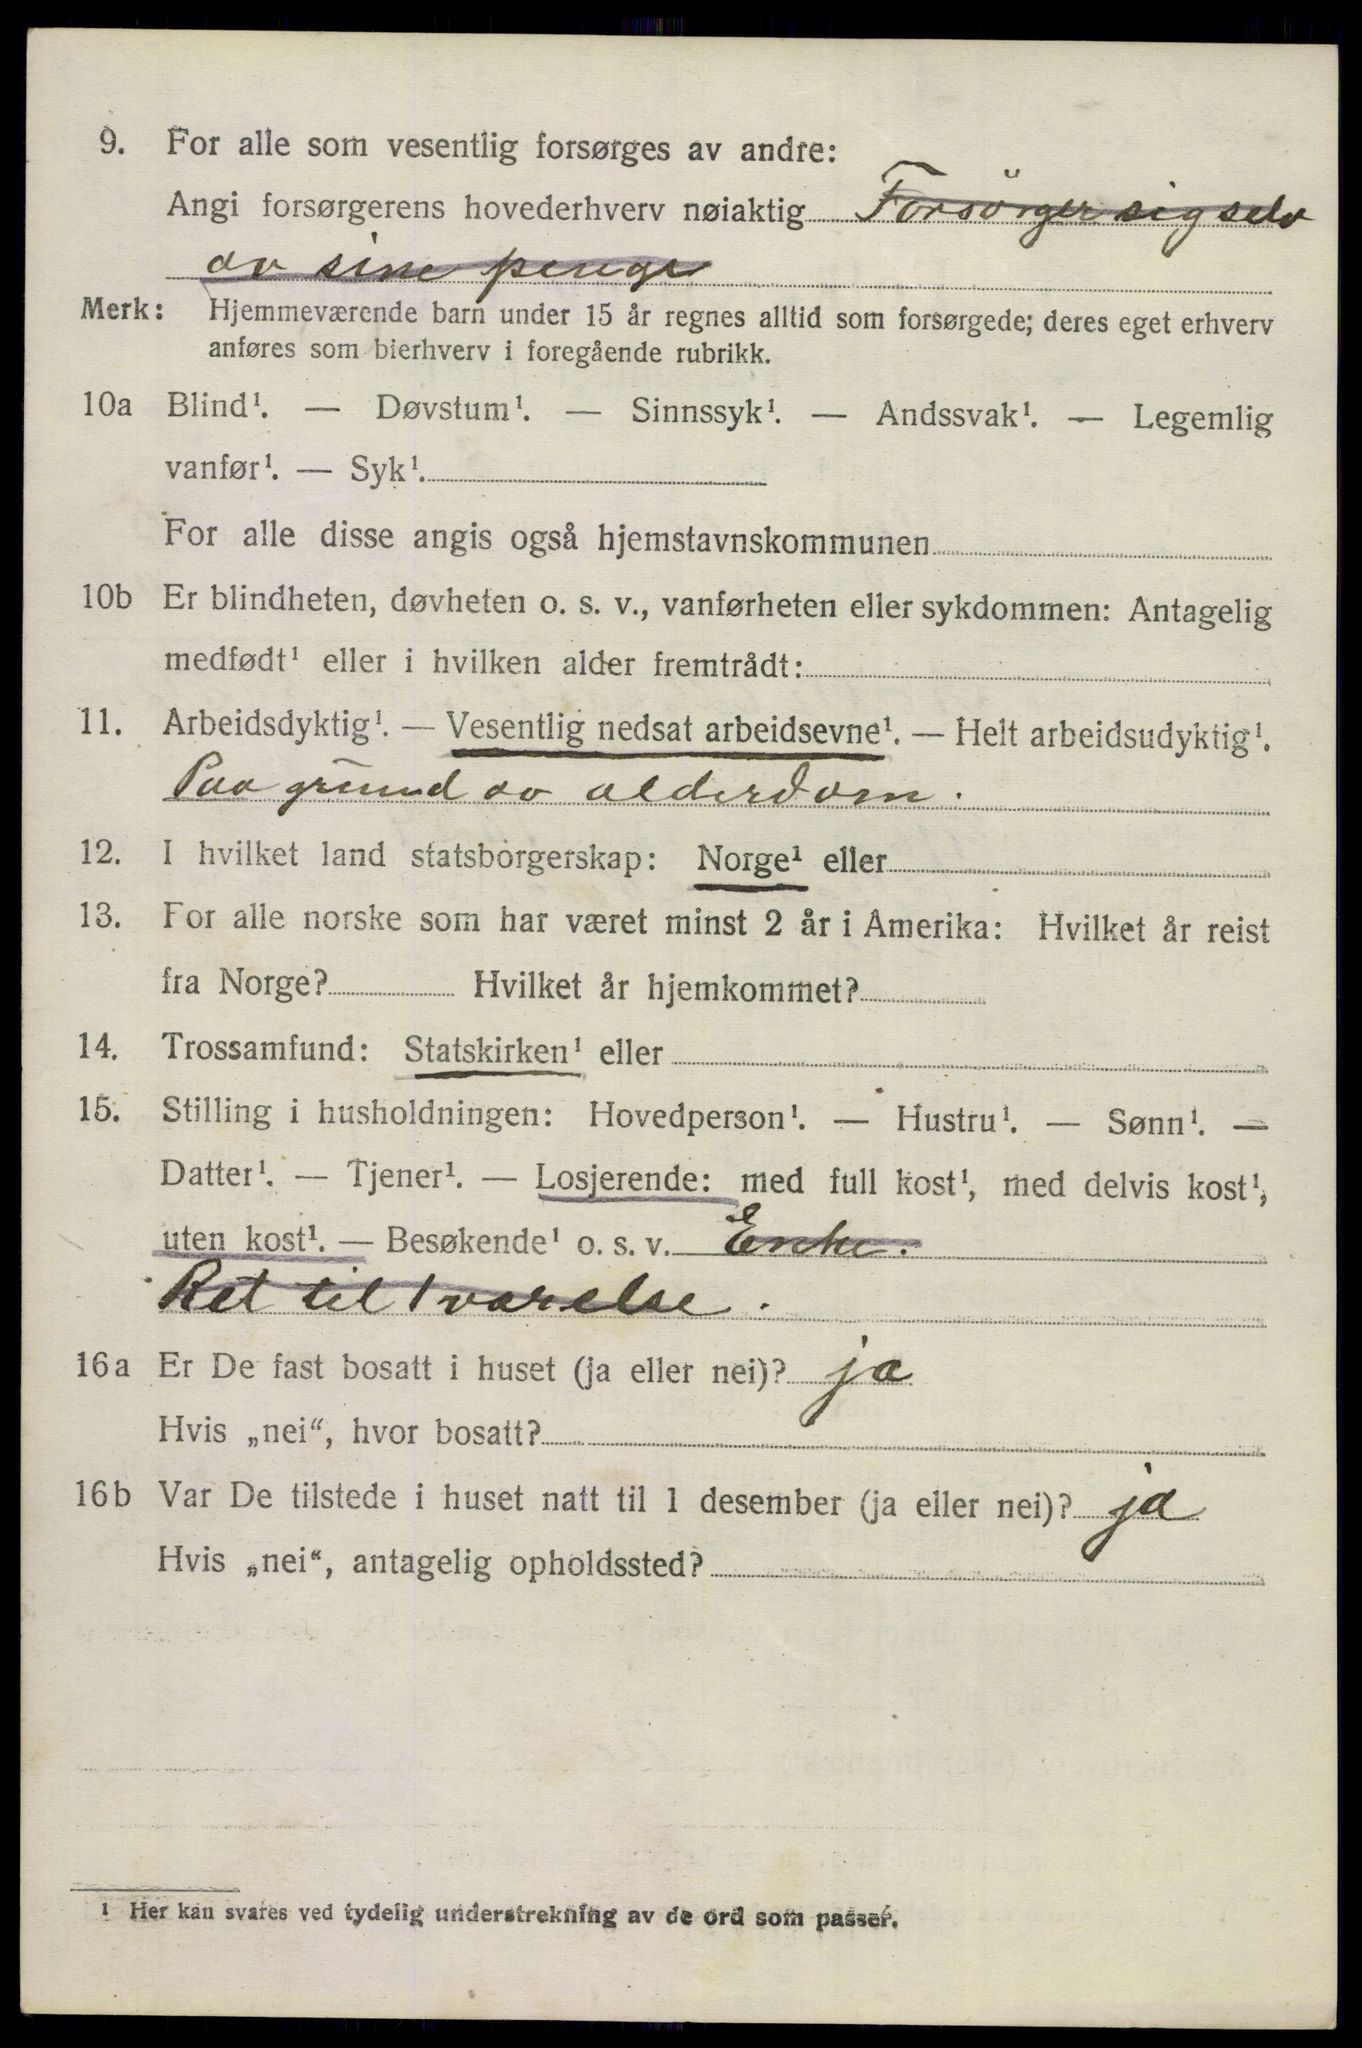 9. For alle som vesentlig forsørges av andre:
Angi forsørgerens hovederhverv nøiaktig Forsörger sig selv
av sine penge
Merk: Hjemmeværende barn under 15 år regnes alltid som forsørgede; deres eget erhverv
anføres som bierhverv i foregående rubrikk.
10a Blind¹. — Døvstum¹. — Sinnssyk¹. — Andssvak¹. — Legemlig
vanfør¹. — Syk¹.
For alle disse angis også hjemstavnskommunen
10b Er blindheten, døvheten o. s. v., vanførheten eller sykdommen: Antagelig
medfødt¹ eller i hvilken alder fremtrådt:
11. Arbeidsdyktig¹. — Vesentlig nedsat arbeidsevne¹. — Helt arbeidsudyktig¹.
Paa grund av alderdom.
12. I hvilket land statsborgerskap: Norge¹ eller
13. For alle norske som har været minst 2 år i Amerika: Hvilket år reist
fra Norge? Hvilket år hjemkommet?
14. Trossamfund: Statskirken¹ eller
15. Stilling i husholdningen: Hovedperson¹. — Hustru¹. — Sønn¹. —
Datter¹. — Tjener¹. — Losjerende: med full kost¹, med delvis kost¹,
uten kost¹. — Besøkende¹ o. s. v. Enke.
Ret til 1 værelse.
16a Er De fast bosatt i huset (ja eller nei)? ja
Hvis „nei“, hvor bosatt?
16b Var De tilstede i huset natt til 1 desember (ja eller nei)? ja
Hvis „nei“, antagelig opholdssted?
¹ Her kan svares ved tydelig understrekning av de ord som passer.